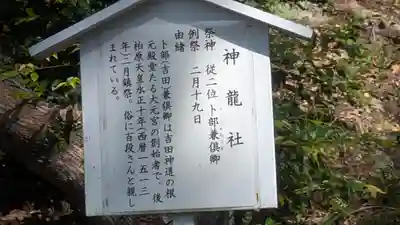 神龍社
祭神　従二位　卜部兼俱卿
例祭　二月十九日
由緒
卜部（吉田）兼俱卿は吉田神道の根
元殿堂たる大元宮の創始者で、後
柏原天皇永正十年（西暦一五一三
年）二月鎮祭。俗に百段さんと親し
まれている。